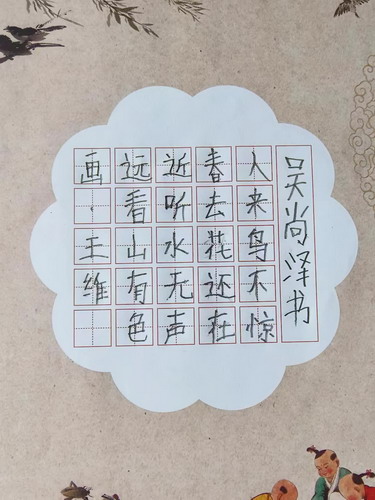 画·王维
远看山有色
近听水无声
春去花还在
人来鸟不惊
吴尚泽书